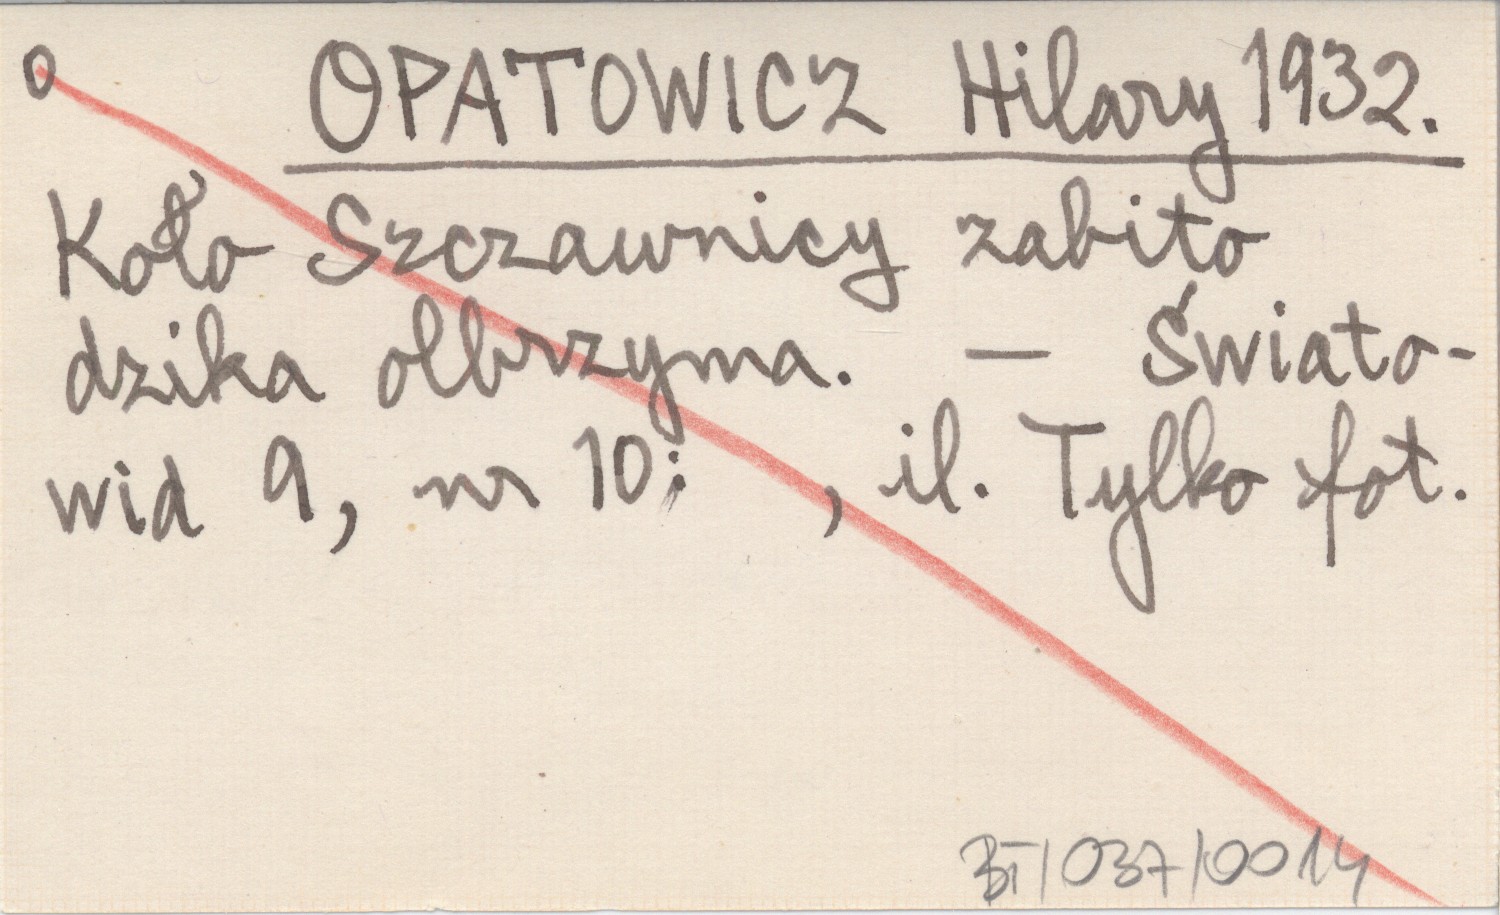 0 OPATOWICZ Hilary 1932.
Koło Szczawnicy zabito
dzika olbrzyma. — Świato-
wid 9, nr 10: , il. Tylko fot.
BT/037/0014